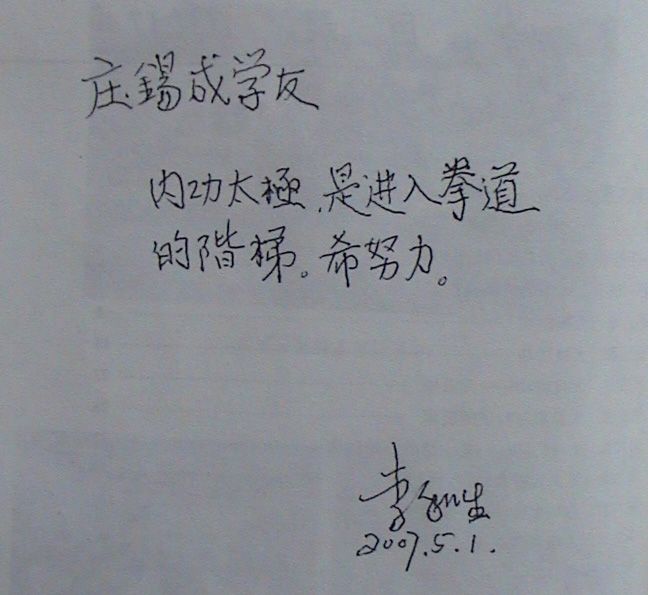 庄錫成学友
内功太極,是进入拳道
的階梯。希努力。
李 生
2007.5.1.